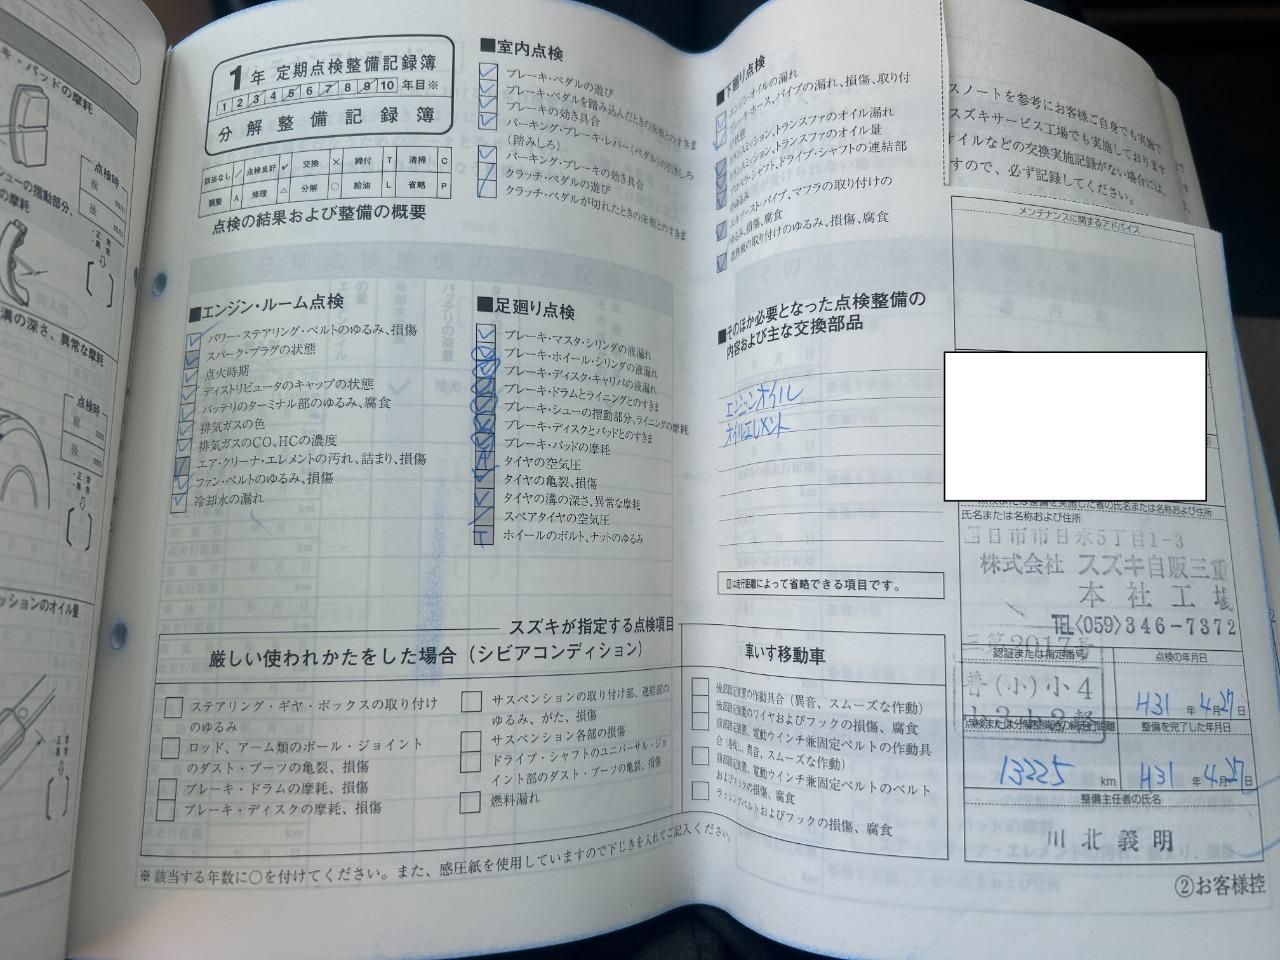 キ・バンドの摩耗
点検時
前
mm
後
mm
シューの摺動部分、
の摩耗
溝の深さ、異常な摩耗
点検時
前
mm
後
mm
ッションのオイル量
1年 定期点検整備記録簿
1 2 3 4 5 6 7 8 9 10 年目※
分解整備記録簿
該当なし / 点検良好 レ 交換 × 締付 T 清掃 C
調整 A 修理 △ 分解 ○ 給油 L 省略 P
点検の結果および整備の概要
■室内点検
ブレーキ・ペダルの遊び
ブレーキ・ペダルを踏み込んだときの床板とのすきま
ブレーキの効き具合
パーキング・ブレーキ・レバー(ペダル)の引きしろ
(踏みしろ)
パーキング・ブレーキの効き具合
クラッチ・ペダルの遊び
クラッチ・ペダルが切れたときの床板とのすきま
■エンジン・ルーム点検
パワー・ステアリング・ベルトのゆるみ、損傷
スパーク・プラグの状態
点火時期
ディストリビュータのキャップの状態
バッテリのターミナル部のゆるみ、腐食
排気ガスの色
排気ガスのCO、HCの濃度
エア・クリーナ・エレメントの汚れ、詰まり、損傷
ファン・ベルトのゆるみ、損傷
冷却水の漏れ
■足廻り点検
ブレーキ・マスタ・シリンダの液漏れ
ブレーキ・ホイール・シリンダの液漏れ
ブレーキ・ディスク・キャリパの液漏れ
ブレーキ・ドラムとライニングとのすきま
ブレーキ・シューの摺動部分、ライニングの摩耗
ブレーキ・ディスクとパッドとのすきま
ブレーキ・パッドの摩耗
タイヤの空気圧
タイヤの亀裂、損傷
タイヤの溝の深さ、異常な摩耗
スペアタイヤの空気圧
ホイールのボルト、ナットのゆるみ
■下廻り点検
エンジン・オイルの漏れ
ブレーキ・ホース、パイプの漏れ、損傷、取り付
け状態
トランスミッション、トランスファのオイル漏れ
トランスミッション、トランスファのオイル量
プロペラ・シャフト、ドライブ・シャフトの連結部
のゆるみ
エキゾースト・パイプ、マフラの取り付けの
ゆるみ、損傷、腐食
遮熱板の取り付けのゆるみ、損傷、腐食
■そのほか必要となった点検整備の
内容および主な交換部品
エンジンオイル
オイルエレメント
は走行距離によって省略できる項目です。
スズキが指定する点検項目
厳しい使われかたをした場合(シビアコンディション)
ステアリング・ギヤ・ボックスの取り付け
のゆるみ
ロッド、アーム類のボール・ジョイント
のダスト・ブーツの亀裂、損傷
ブレーキ・ドラムの摩耗、損傷
ブレーキ・ディスクの摩耗、損傷
サスペンションの取り付け部、連結部の
ゆるみ、がた、損傷
サスペンション各部の損傷
ドライブ・シャフトのユニバーサル・ジョ
イント部のダスト・ブーツの亀裂、損傷
燃料漏れ
車いす移動車
後部固定装置の作動具合(異音、スムーズな作動)
後部固定装置のワイヤおよびフックの損傷、腐食
前部固定装置、電動ウインチ兼固定ベルトの作動具
合(巻取し、異音、スムーズな作動)
前部固定装置、電動ウインチ兼固定ベルトのベルト
およびフックの損傷、腐食
ラッシングベルトおよびフックの損傷、腐食
※該当する年数に○を付けてください。また、感圧紙を使用していますので下じきを入れてご記入ください。
スノートを参考にお客様ご自身でも実施で
スズキサービス工場でも実施しております
オイルなどの交換実施記録がない場合には、
すので、必ず記録してください。
メンテナンスに関するアドバイス
点検または整備を実施した者の氏名または名称および住所
氏名または名称および住所
四日市市日永5丁目1-3
株式会社 スズキ自販三重
本社工場
TEL〈059〉346-7372
認証または指定番号
点検の年月日
H31 年 4月27日
整備を完了した年月日
13225 km
H31 年 4月27日
整備主任者の氏名
川北義明
②お客様控